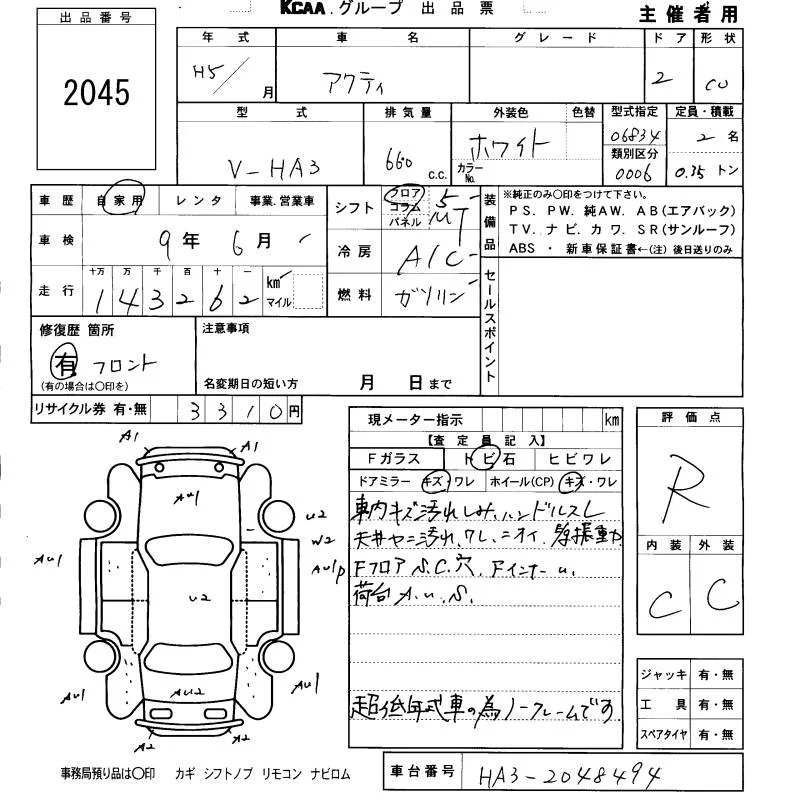 KCAA.グループ 出品票
主催者用
出品番号
2045
年式 車名 グレード ドア 形状
H5/ 月 アクティ 2 CU
型式 排気量 外装色 色替 型式指定 定員・積載
V-HA3 660 c.c. ホワイト カラーNo. 06834 2名
類別区分
0006 0.35トン
車歴 自家用 レンタ 事業.営業車
シフト フロア コラム パネル 5 MT
装備品
※純正のみ○印をつけて下さい。
PS. PW. 純AW. AB(エアバック)
TV. ナビ. カワ. SR(サンルーフ)
ABS ・ 新車保証書←(注) 後日送りのみ
車検 9年 6月
冷房 A/C
走行 十万 万 千 百 十 一
143262 km マイル
燃料 ガソリン
セールスポイント
修復歴 箇所
有 フロント
(有の場合は○印を)
注意事項
名変期日の短い方 月 日まで
リサイクル券 有・無 3310円
現メーター指示 km
【査定員記入】
Fガラス トビ石 ヒビワレ
ドアミラー キズ・ワレ ホイール(CP) キズ・ワレ
車内キズ汚れしみ、ハンドルスレ
天井ヤニ汚れ、ワレ、ニオイ、
Fフロア S.C.穴、Fインナーu.
荷台 A.u.S.
超低年式車の為ノークレームです
評価点
R
内装 外装
C C
ジャッキ 有・無
工具 有・無
スペアタイヤ 有・無
A1 A1
AU1
U2
W2
AU1 AU1P
U2
AU1 AU2 AU1
A2 A2
事務局預り品は○印 カギ シフトノブ リモコン ナビロム
車台番号 HA3-2048494